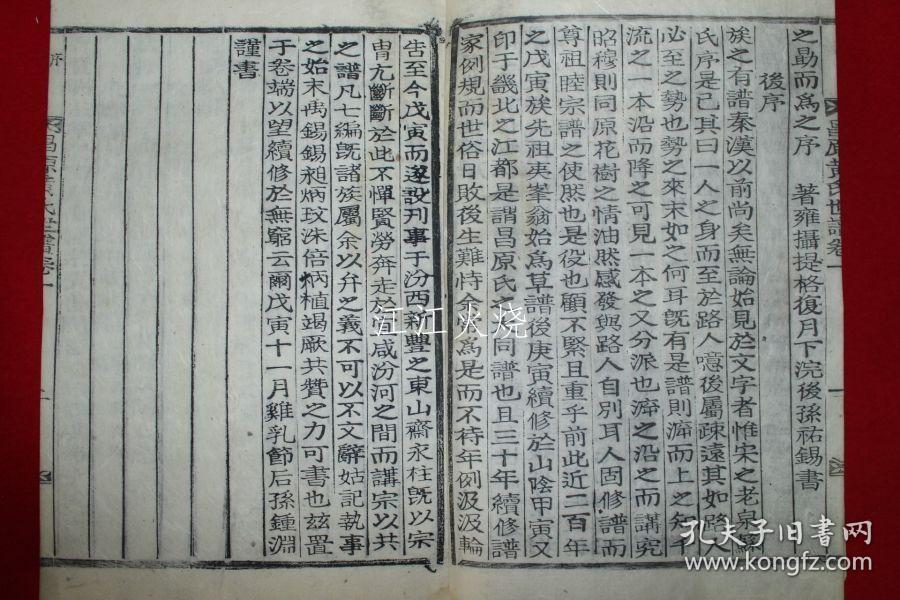 之勛而爲之序　著雍攝提格復月下浣後孫祐錫書
後序
族之有譜秦漢以前尚矣無論始見於文字者惟宋之老泉蘇
氏序是已其曰一人之身而至於路人噫後屬疎遠其如路人
必至之勢也勢之來末如之何耳旣有是譜則泝而上之知千
流之一本沿而降之可見一本之又分派也泝之沿之而講究
昭穆則同原花樹之情油然感發與路人自別耳人固修譜而
尊祖睦宗譜之使然也是役也顧不緊且重乎前此近二百年
之戊寅族先祖夷峯翁始爲草譜後庚寅續修於山陰甲寅又
印于畿北之江都是謂昌原氏之同譜也且三十年續修譜
家例規而世俗日敗後生難恃余常爲是而不待年例汲汲輪
告至今戊寅而遂設刋事于汾西新豐之東山齋永柱旣以宗
冑尤斷斷於此不憚賢勞奔走於 咸汾河之間而講宗以共
之譜凡七編旣諸族屬余以弁之義不可以不文辭姑記執事
之始末禹錫錫昶炳玟洙倍炳植竭厥共贊之力可書也玆置
于卷端以望續修於無窮云爾戊寅十一月雞乳節后孫鍾淵
謹書
昌原黃氏世譜卷一
沅江火烧
孔夫子旧书网
www.kongfz.com